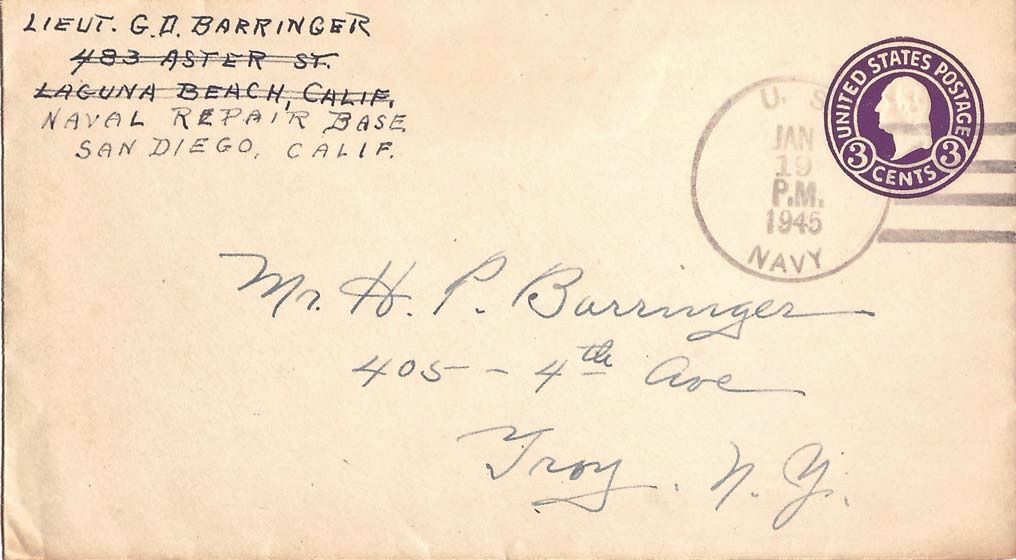 LIEUT. G. D. BARRINGER
483 ASTER ST.
LAGUNA BEACH, CALIF.
NAVAL REPAIR BASE
SAN DIEGO, CALIF.
U. S.
JAN
19
P.M.
1945
NAVY
UNITED STATES POSTAGE
3 CENTS 3
Mr. H. P. Barringer
405 - 4th Ave
Troy. N. Y.